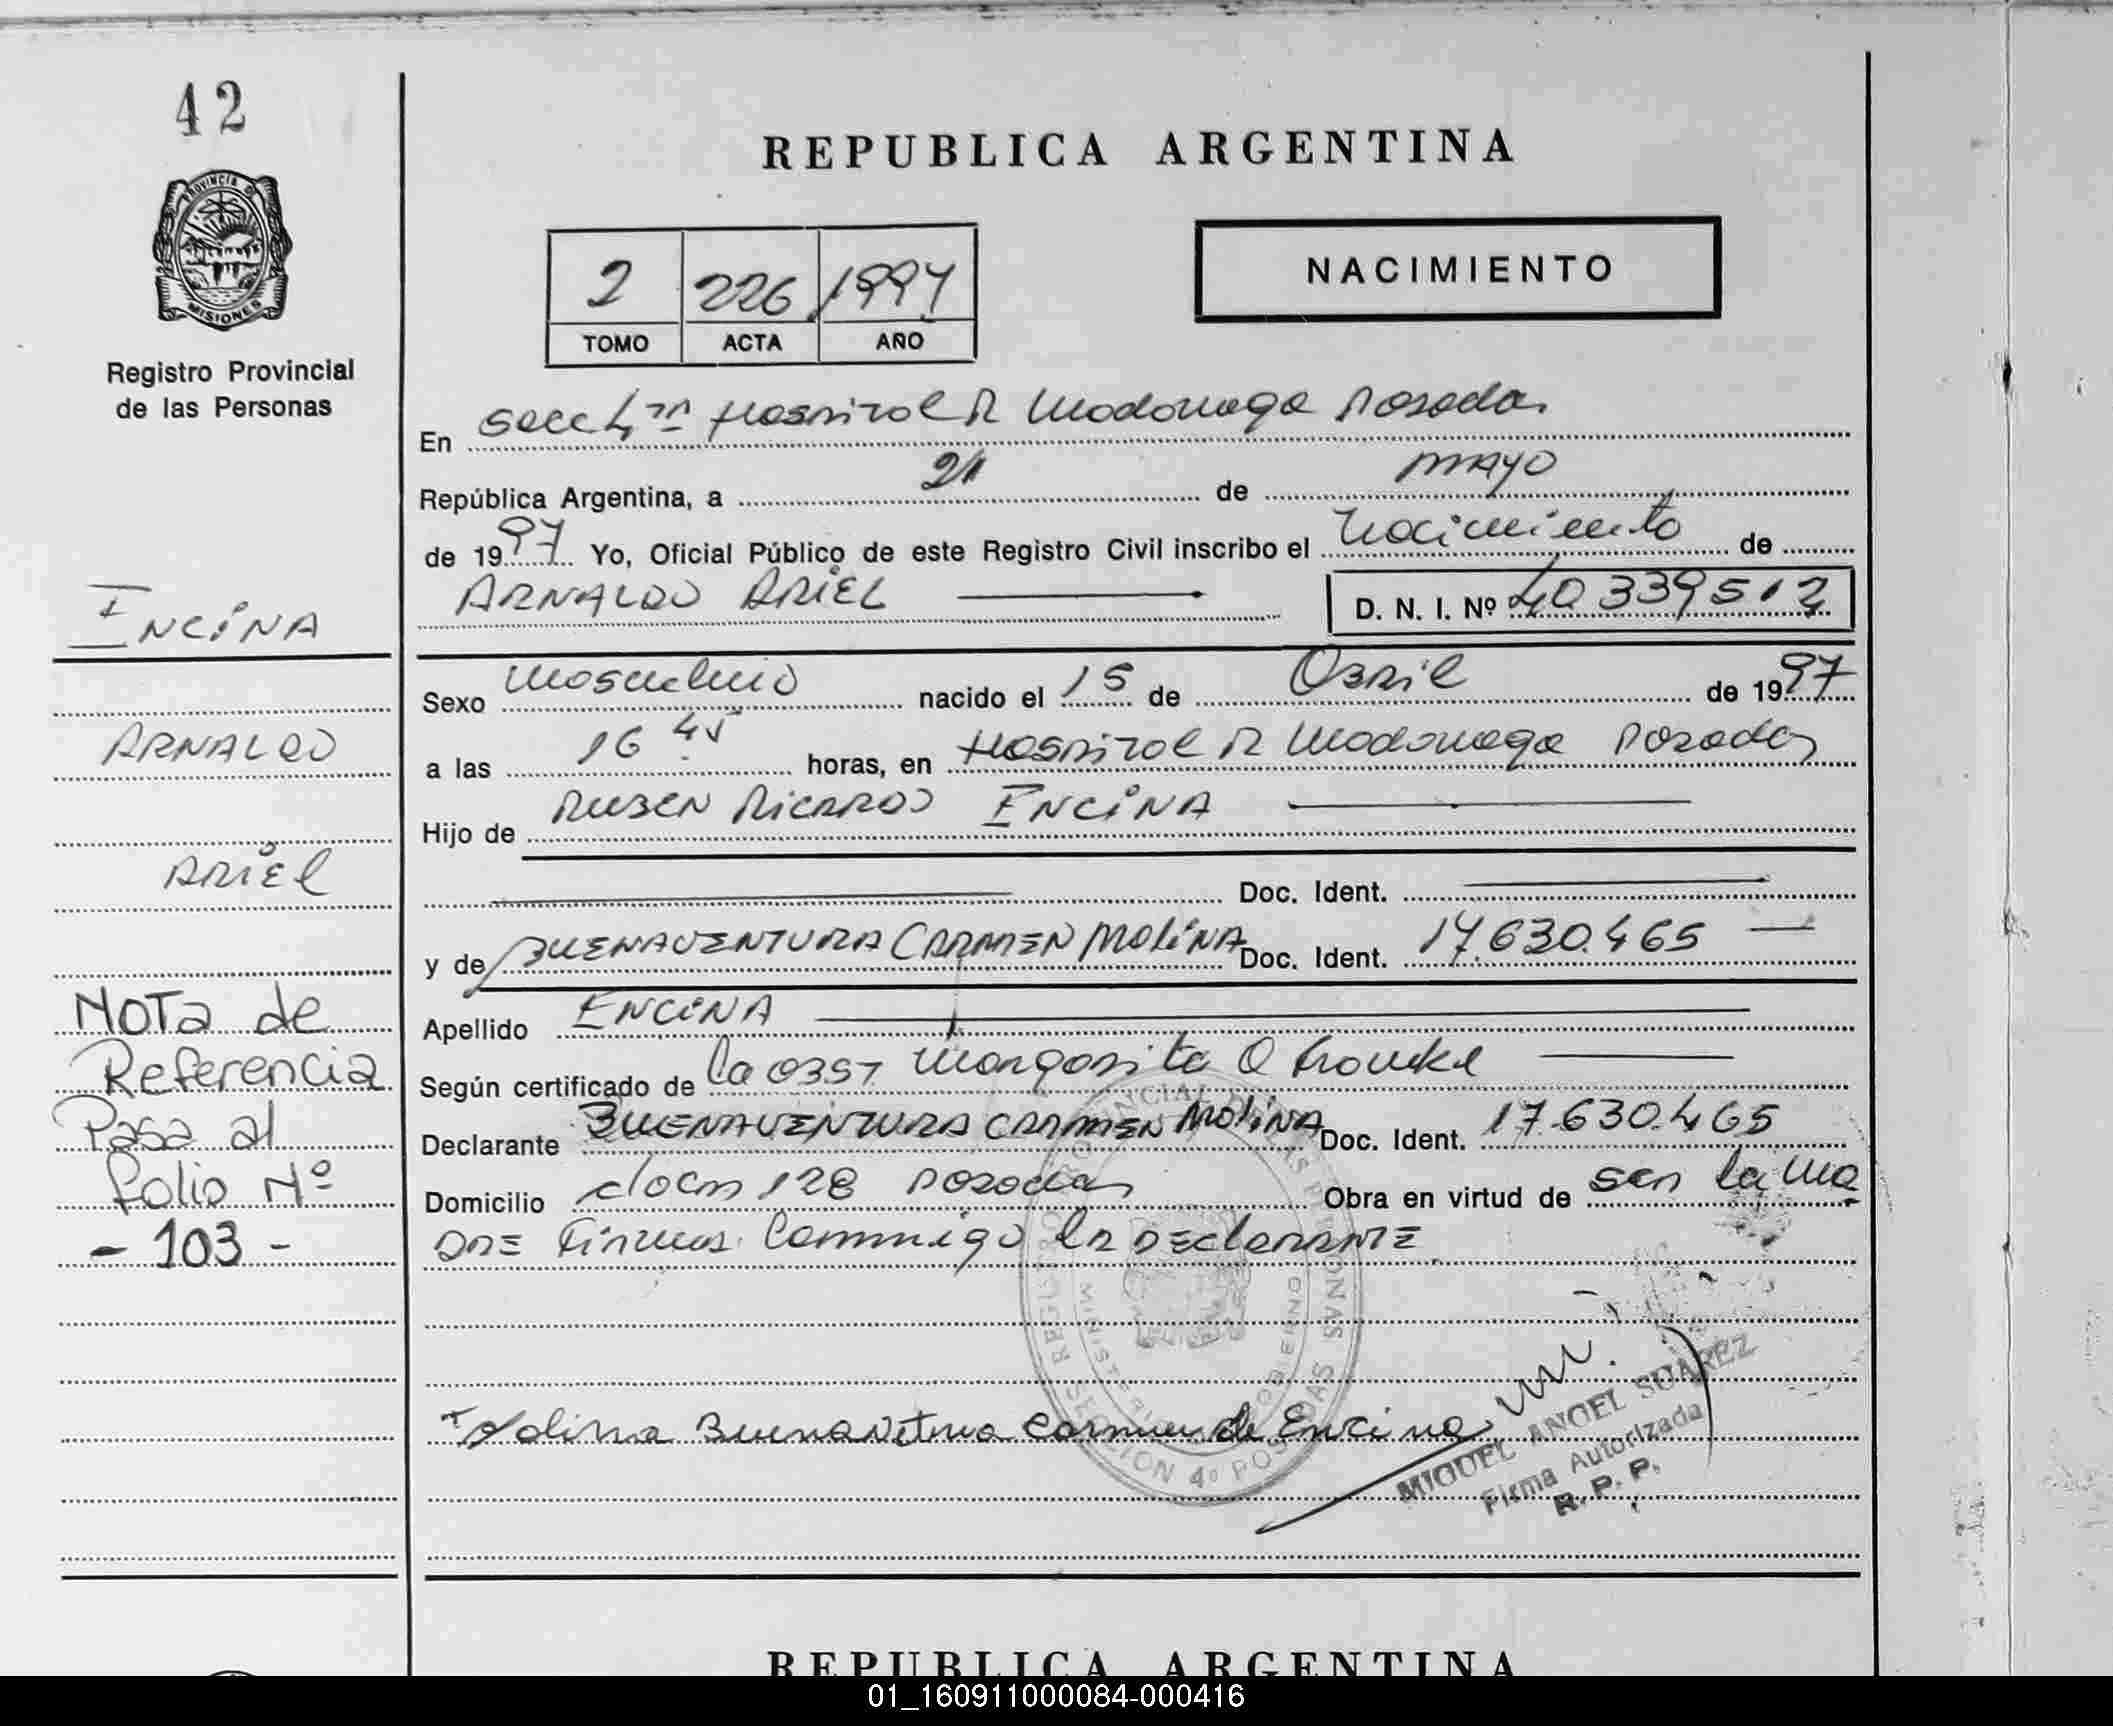 42
PROVINCIA DE
MISIONES
Registro Provincial
de las Personas
REPUBLICA ARGENTINA
2 226 1997
TOMO ACTA AÑO
NACIMIENTO
En Secc 4ta Hospital R Madariaga Posadas
República Argentina, a 21 de mayo
de 1997 Yo, Oficial Público de este Registro Civil inscribo el Nacimiento de
ARNALDO ARIEL D. N. I. Nº 40339512
Sexo Masculino nacido el 15 de Abril de 1997
a las 16 45 horas, en Hospital R Madariaga Posadas
Hijo de RUBEN RICARDO ENCINA
Doc. Ident.
y de BUENAVENTURA CARMEN MOLINA Doc. Ident. 17.630.465
Apellido ENCINA
Según certificado de la OBST Margarita
Declarante BUENAVENTURA CARMEN MOLINA Doc. Ident. 17.630.465
Domicilio 128 Posadas Obra en virtud de ser la Ma
DRE Firmas Conmigo la DEclarante
Molina Buenavetura Carmen de Encina
MIGUEL ANGEL SUAREZ
Firma Autorizada
R. P. P.
REGISTRO PROVINCIAL DE LAS PERSONAS
MINISTERIO GOBIERNO
SECCION 4º POSADAS
ENCINA
ARNALDO
ARIEL
NOTa de
Referencia
Pasa al
folio Nº
- 103 -
REPUBLICA ARGENTINA
01_160911000084-000416